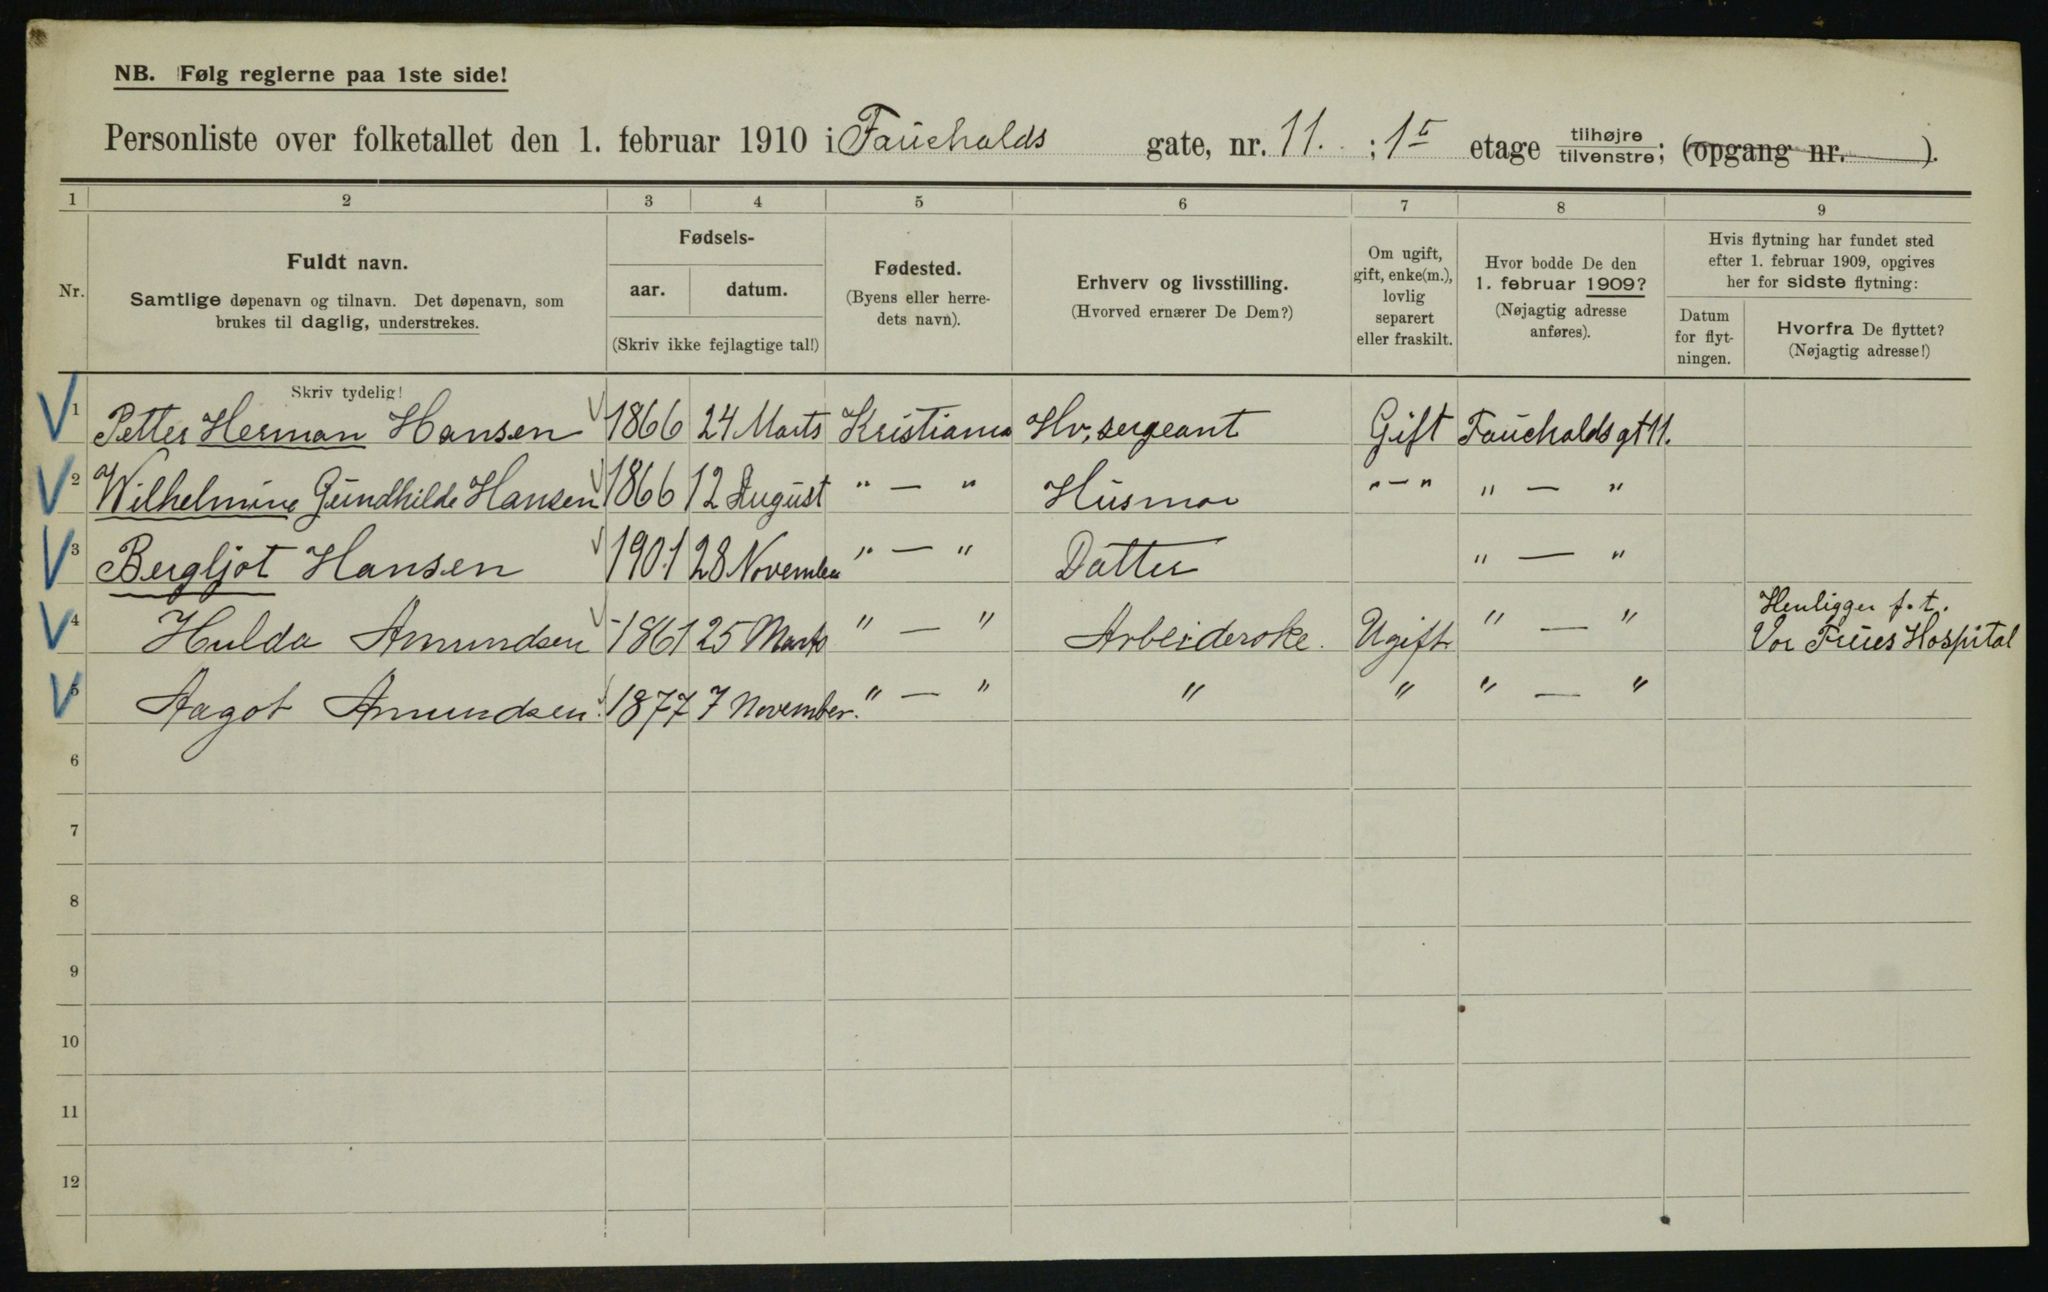 NB. Følg reglerne paa 1ste side!
Personliste over folketallet den 1. februar 1910 i Faucholds gate, nr. 11. ; 1ste etage tilhøjre tilvenstre; (opgang nr. ).
1 2 3 4 5 6 7 8 9
Nr.
Fuldt navn.
Samtlige døpenavn og tilnavn. Det døpenavn, som
brukes til daglig, understrekes.
Fødsels-
aar. datum.
(Skriv ikke fejlagtige tal!)
Fødested.
(Byens eller herre-
dets navn).
Erhverv og livsstilling.
(Hvorved ernærer De Dem?)
Om ugift,
gift, enke(m.),
lovlig
separert
eller fraskilt.
Hvor bodde De den
1. februar 1909?
(Nøjagtig adresse
anføres).
Hvis flytning har fundet sted
efter 1. februar 1909, opgives
her for sidste flytning:
Datum
for flyt-
ningen.
Hvorfra De flyttet?
(Nøjagtig adresse!)
Skriv tydelig!
1 Petter Herman Hansen 1866 24 Marts Kristiania Hv, sergeant Gift Faucholds gt 11.
2 Wilhelmine Gundhilde Hansen 1866 12 August " — " Husmor " — " " — "
3 Bergljot Hansen 1901 28 November " — " Datter " — "
4 Hulda Amundsen 1861 25 Marts " — " Arbeiderske. Ugift " — " Henligger f. t.
Vor Frues Hospital
5 Aagot Amundsen. 1877 7 November. " — " " " " — "
6
7
8
9
10
11
12